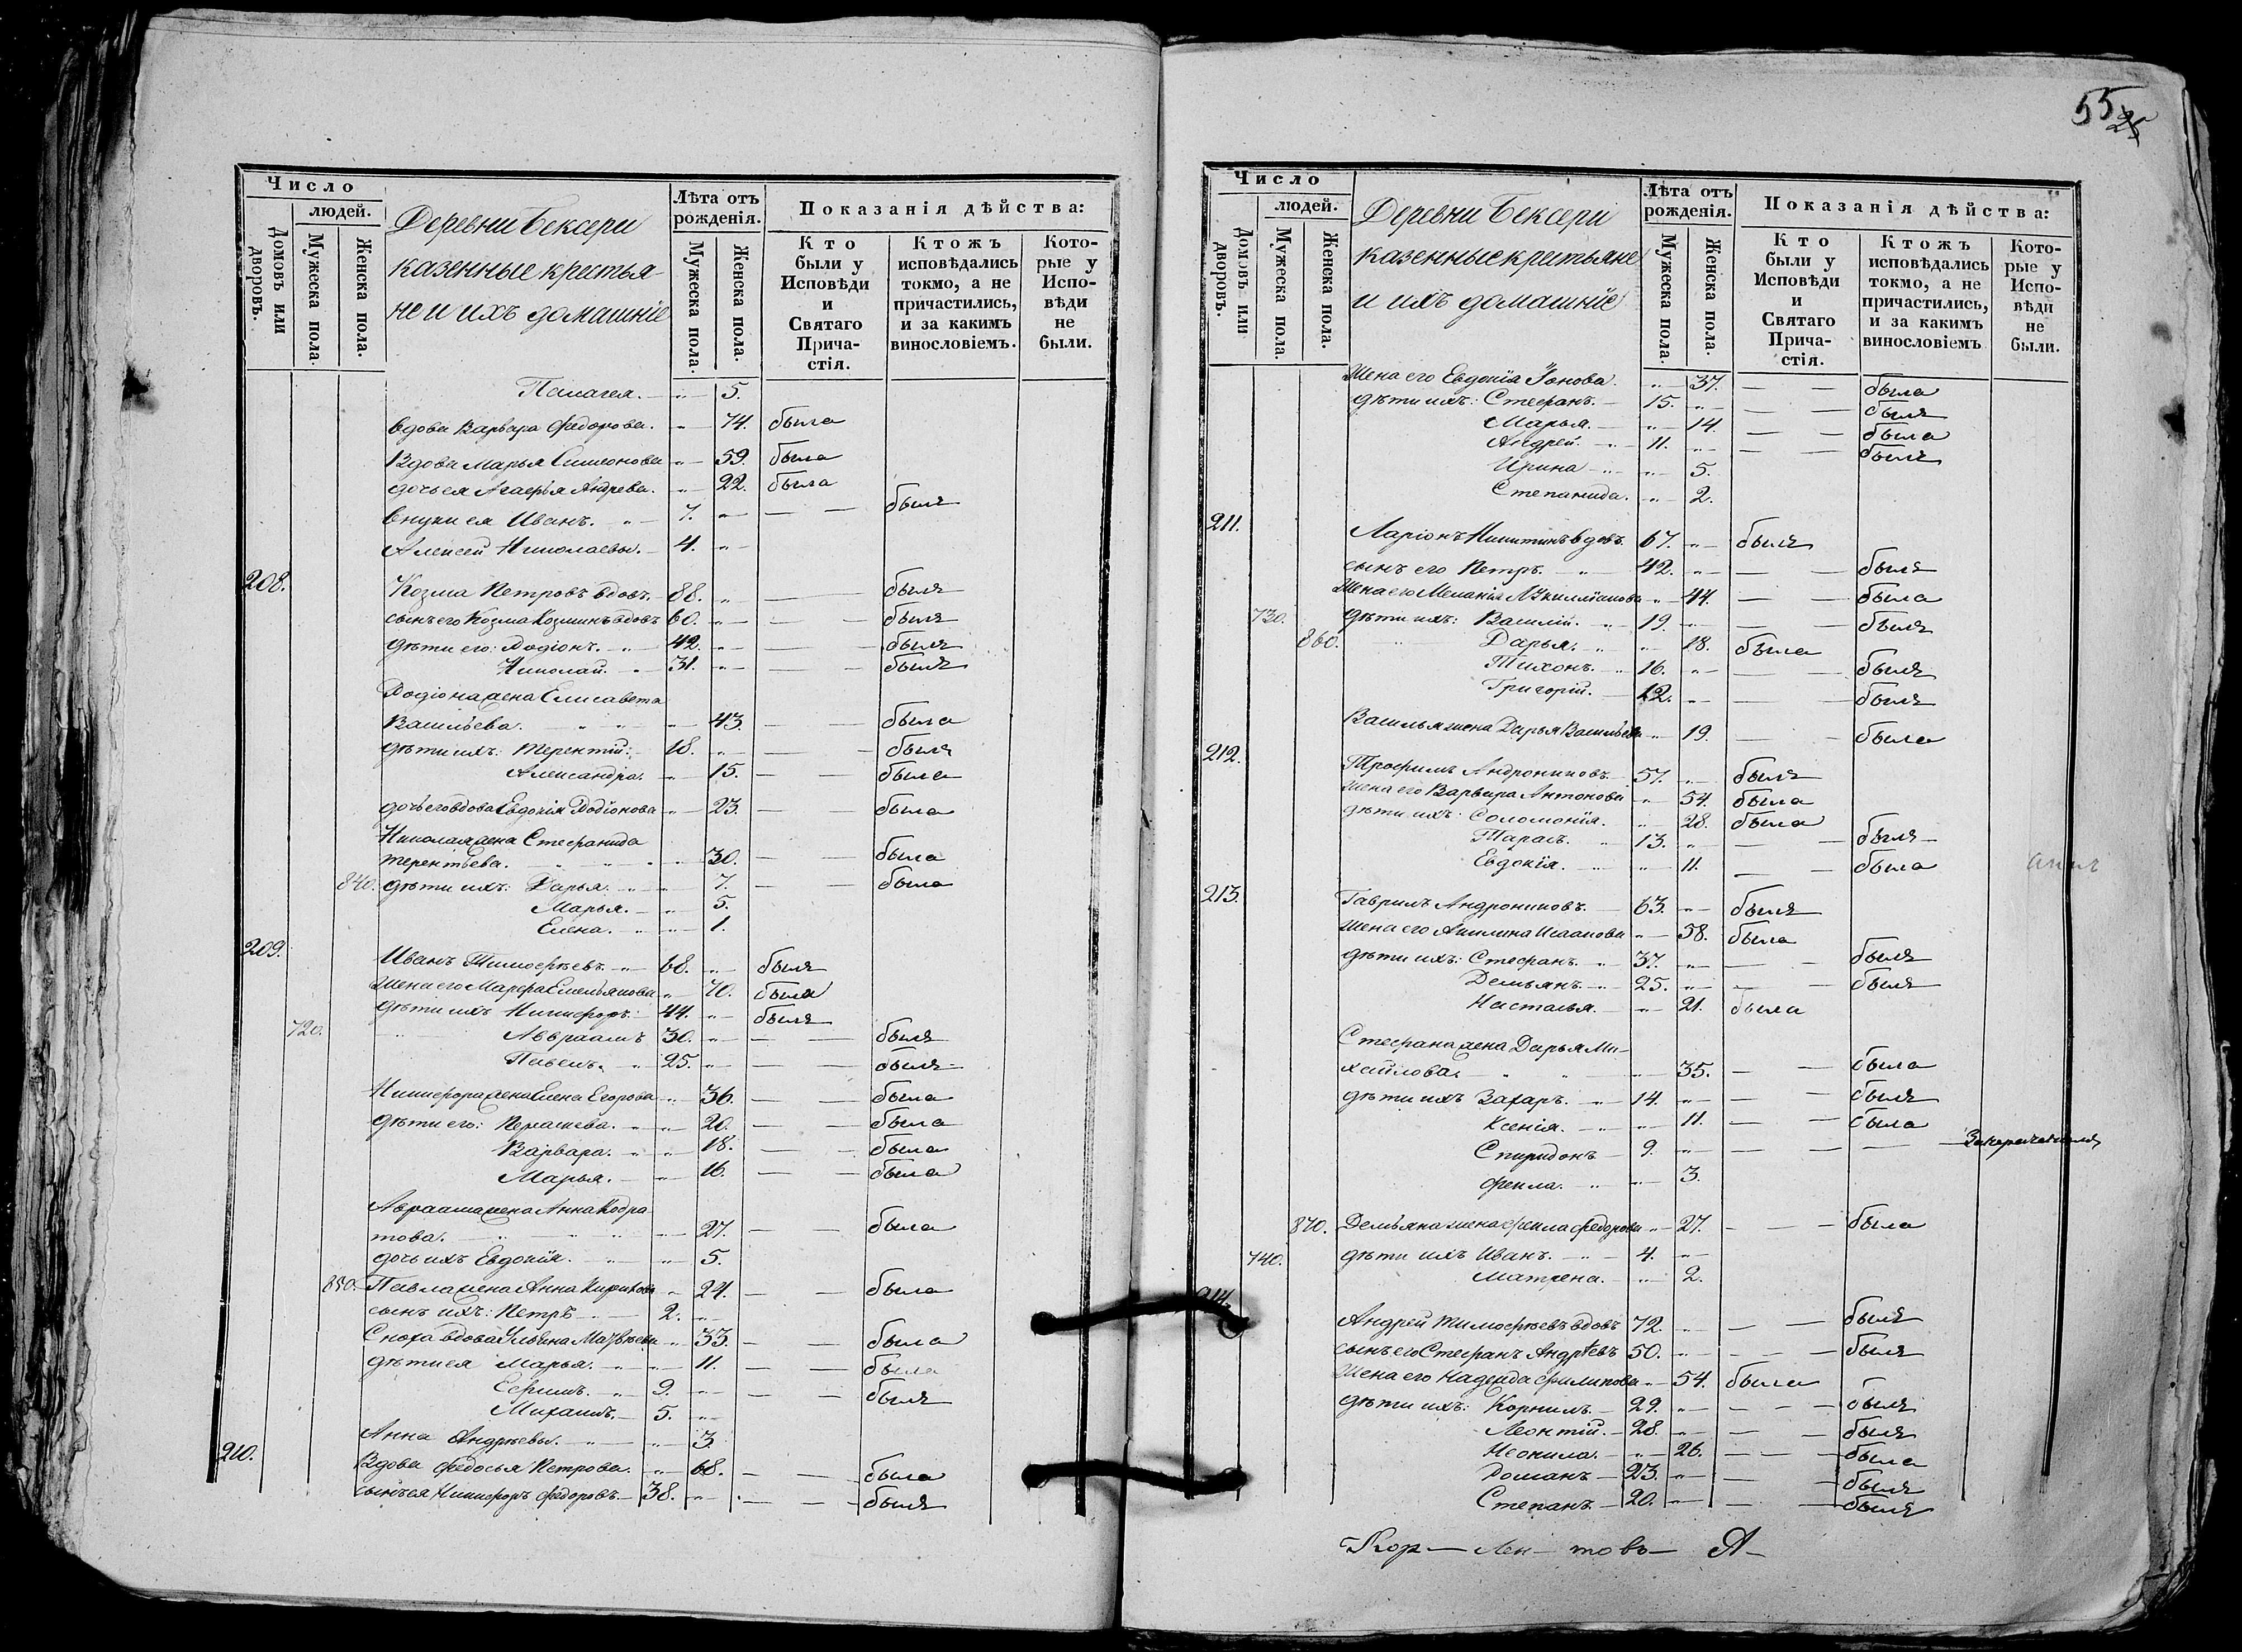 55
25
Число
людей.
Домовъ или дворовъ.
Мужеска пола.
Женска пола.
Деревни Бексери
казенные крестья-
не и ихъ домашніе
Лѣта отъ рожденія.
Мужеска пола.
Женска пола.
Показанія дѣйства:
Кто были у Исповѣди и Святаго Прича-стія.
Ктожъ исповѣдались токмо, а не причастились, и за какимъ винословіемъ.
Кото-рые у Испо-вѣди не были.
Палагея. 5.
вдова Варвара Федорова. 74. была
Вдова Марья Симеонова 59. была
дочь ея Агафья Андрева. 22. была
внуки ея Иванъ. 7. былъ
Алексей Николаевы. 4.
208.
Козма Петровъ вдовъ. 88. былъ
сынъ его Козма Козминъ вдовъ 60. былъ
дѣти его: Родіонъ. 42. былъ
Николай. 31. былъ
Родіона жена Елисавета
Васильева. 43. была
дѣти ихъ: Терентій. 18. былъ
Александра. 15. была
дочь его вдова Евдокія Родіонова 23. была
Николая жена Стефанида
Терентьева. 30. была
840. дѣти ихъ: Дарья. 7. была
Марья. 5.
Елена. 1.
209.
Иванъ Тимофѣевъ. 68. былъ
Жена его Марфа Емельянова 70. была
дѣти ихъ Никифоръ. 44. былъ
720. Авраамъ 30. былъ
Павелъ. 25. былъ
Никифора жена Елена Егорова 36. была
дѣти его: 20. была
Варвара. 18. была
Марья. 16. была
Авраама жена Анна Кодра
това. 27. была
дочь ихъ Евдокія. 5.
850. Павла жена Анна 24. была
сынъ ихъ: Петръ 2.
Сноха вдова Ульяна Матвѣева 33. была
дѣти ея Марья. 11. была
Ефимъ. 9. былъ
Михаилъ. 5.
Анна Андрѣевы. 3.
210.
Вдова Федосья Петрова. 68. была
сынъ ея Никифоръ Федоровъ. 38. былъ
Число
людей.
Домовъ или дворовъ.
Мужеска пола.
Женска пола.
Деревни Бексери
казенные крестьяне
и ихъ домашніе
Лѣта отъ рожденія.
Мужеска пола.
Женска пола.
Показанія дѣйства:
Кто были у Исповѣди и Святаго Прича-стія.
Ктожъ исповѣдались токмо, а не причастились, и за какимъ винословіемъ
Кото-рые у Испо-вѣди не были.
Жена его Евдокія Іонова. 37. была
дѣти ихъ: Стефанъ. 15. былъ
Марья. 14. была
Андрей. 11. былъ
Ирина 5.
Степанида. 2.
211.
Ларіонъ Никитинъ вдовъ. 67. былъ
сынъ его Петръ. 42. былъ
Жена его Меланія 44. была
730. дѣти ихъ: Василій. 19. былъ
860. Дарья. 18. была
Тихонъ. 16. былъ
Григорій. 12. былъ
Василья жена Дарья Васильева 19. была
212.
Трофимъ Андрониковъ. 57. былъ
Жена его Варвара Антонова 54. была
дѣти ихъ: Соломонія. 28. была
Тарасъ. 13. былъ
Евдокія. 11. была
213.
Гаврилъ Андрониковъ. 63. былъ
Жена его Акилина Исаакова 58. была
дѣти ихъ: Стефанъ. 37. былъ
Демьянъ. 25. былъ
Насталья. 21. была
Стефана жена Дарья Ми-
хайлова. 35. была
дѣти ихъ Захаръ. 14. былъ
Ксенія. 11. была
Спиридонъ 9.
Фекла. 3.
870. Демьяна жена Фекла Федорова 27. была
740. дѣти ихъ Иванъ. 4.
Матрена. 2.
214.
Андрей Тимофѣевъ вдовъ 72. былъ
сынъ его Стефанъ Андрѣевъ 50. былъ
Жена его Надежда Филипова 54. была
дѣти ихъ: Корнилъ. 29. былъ
Леонтій. 28. былъ
Неонила. 26. была
Романъ 23. былъ
Степанъ 20. былъ